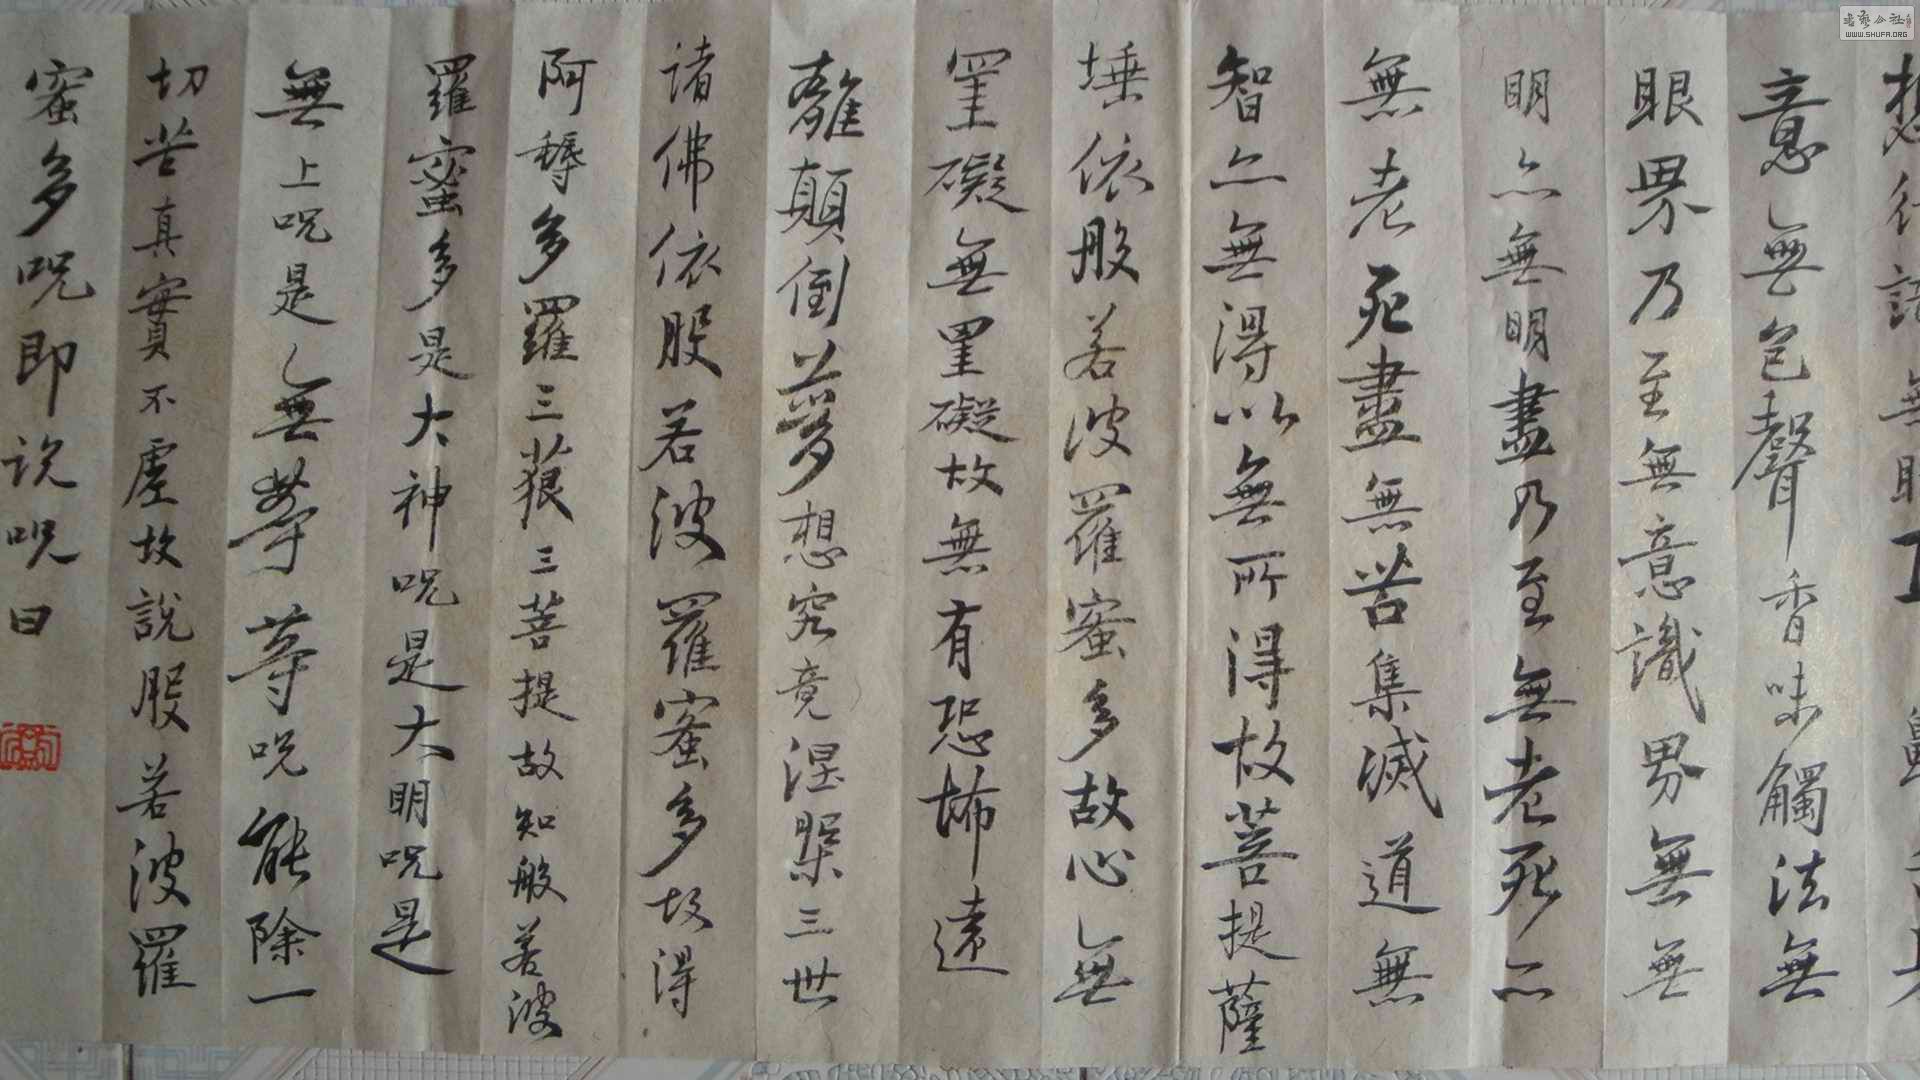 想行識無眼耳鼻舌身
意無色聲香味觸法無
眼界乃至無意識界無無
明亦無明盡乃至無老死亦
無老死盡無苦集滅道無
智亦無得以無所得故菩提薩
埵依般若波羅蜜多故心無
罣礙無罣礙故無有恐怖遠
離顛倒夢想究竟涅槃三世
諸佛依般若波羅蜜多故得
阿耨多羅三藐三菩提故知般若波
羅蜜多是大神呪是大明呪是
無上呪是無等等呪能除一
切苦真實不虛故說般若波羅
蜜多呪即说呪曰
书藝公社
WWW.SHUFA.ORG